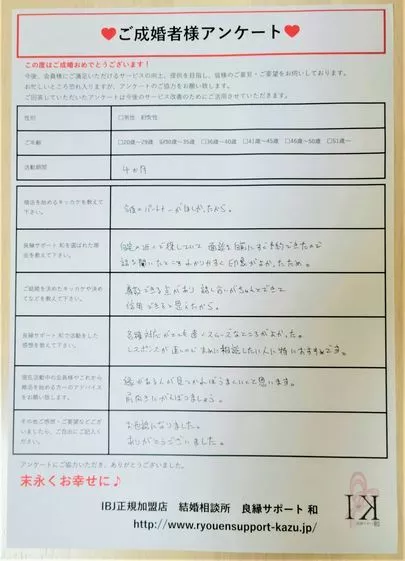 ♥ご成婚者様アンケート♥
この度はご成婚おめでとうございます！
今後、会員様にご満足いただけるサービスの向上、提供を目指し、皆様のご意見・ご要望をお伺いしております。
お忙しいところ恐れ入りますが、アンケートのご協力をお願い致します。
ご回答していただいたアンケートは今後のサービス改善のためにご活用させていただきます。
性別
□男性 ☑女性
ご年齢
□20歳～29歳 ☑30歳～35歳 □36歳～40歳 □41歳～45歳 □46歳～50歳 □51歳～
活動期間
4か月
婚活を始めるキッカケを教えて
下さい。
今後のパートナーがほしかったから。
良縁サポート 和を選ばれた理
由を教えて下さい。
自宅の近くで探していて 面談を自宅にすぐ予約できたので
話を聞いたところ わかりやすく 印象がよかったため。
ご結婚を決めたキッカケや決め
てなどを教えて下さい。
尊敬できる点があり 話し合いがちゃんとできて
信用できると思えたから。
良縁サポート 和で活動をした
感想を教えて下さい。
各種対応がとても速くスムーズなところがよかった。
レスポンスが速いので まめに相談したい人に特におすすめです。
現在活動中の会員様やこれから
婚活を始める方へのアドバイス
をお願い致します。
縁がある人が見つかればうまくいくと思います。
前向きにがんばりましょう。
その他ご感想・ご要望などござ
いましたら、ご自由にご記入くだ
さい。
お世話になりました。
ありがとうございました。
アンケートにご協力いただき、ありがとうございました。
末永くお幸せに♪
IBJ正規加盟店 結婚相談所 良縁サポート 和
http://www.ryouensupport-kazu.jp/